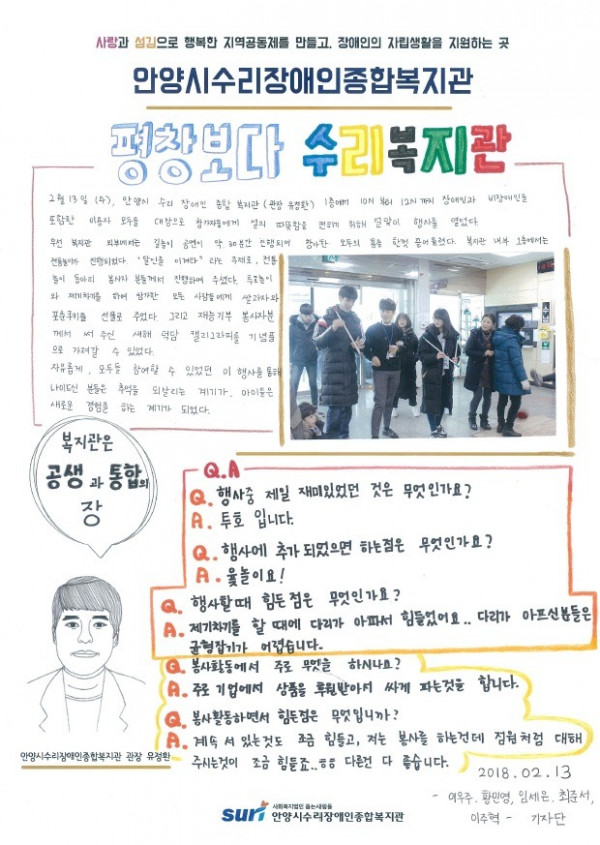 사랑과 섬김으로 행복한 지역공동체를 만들고, 장애인의 자립생활을 지원하는 곳
안양시수리장애인종합복지관
평창보다 수리복지관
2월 13일 (수), 안양시 수리 장애인 종합 복지관 (관장 유정환) 1층에서 10시 부터 12시 까지 장애인과 비장애인을
포함한 이용자 모두를 대상으로 참가자들에게 설의 따뜻함을 전하기 위해 설맞이 행사를 열었다.
우선 복지관 외부에서는 길놀이 공연이 약 30분간 진행되며 참가한 모두의 흥을 한껏 끌어올렸다. 복지관 내부 1층에서는
전통놀이가 진행되었다. 라는 주제로, 전통
놀이 동아리 봉사자 분들께서 진행하여 주셨다. 투호놀이
와 제기차기를 하며 참가한 모든 사람들에게 쌀과자와
포춘쿠키를 선물로 주었다. 그리고 재능기부 봉사자분
께서 써 주신 새해 덕담 캘리그라피를 기념품
으로 가져갈 수 있었다.
자유롭게, 모두들 참여할 수 있었던 이 행사를 통해
나이드신 분들은 추억을 되살리는 계기가, 아이들은
새로운 경험을 하는 계기가 되었다.
복지관은
공생과 통합의
장
Q.A
Q. 행사중 제일 재미있었던 것은 무엇인가요?
A. 투호 입니다.
Q. 행사에 추가 되었으면 하는점은 무엇인가요?
A. 윷놀이요!
Q. 행사할때 힘든점은 무엇인가요?
A. 제기차기를 할 때에 다리가 아파서 힘들었어요.. 다리가 아프신분들은
균형잡기가 어렵습니다.
Q. 봉사활동에서 주로 무엇을 하시나요?
A. 주로 기업에서 상품을 후원받아서 싸게 파는것을 합니다.
Q. 봉사활동하면서 힘든점은 무엇입니까?
A. 계속 서 있는것도 조금 힘들고, 저는 봉사를 하는건데 직원처럼 대해
주시는것이 조금 힘들죠..ㅎㅎ 다른건 다 좋습니다.
안양시수리장애인종합복지관 관장 유정환
2018.02.13
- 여우주, 황민영, 임세은, 최준서,
이주혁 - 기자단
suri 사회복지법인 돕는사람들
안양시수리장애인종합복지관